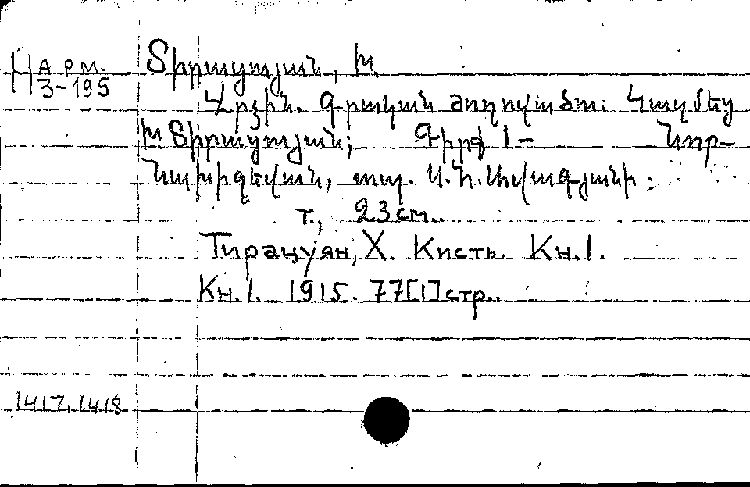 АРМ. Տիրացույան, Խ
3-195
Վրձին. Գրական ժողովածու: Կազմեց
Խ. Տիրացույան; Գիրք 1- Նոր-
Նախիջեվան, տպ. Ս.Ն.Ավագյանի:
т., 23см.
Тирацуян, Х. Кисть. Кн.1.
Кн.1. 1915. 77[1]стр.
1417,1418